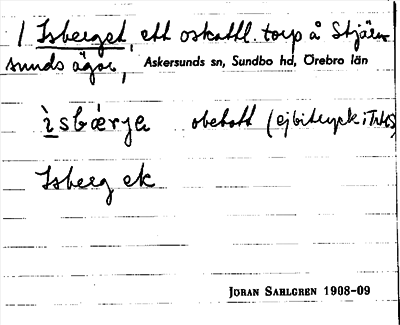 1 Isberget, ett oskattl. torp å Stjärn
sunds ägor, Askersunds sn, Sundbo hd, Örebro län
ìsbǽrja obetott (ej bitryck i
Isberg ek
JORAN SAHLGREN 1908-09